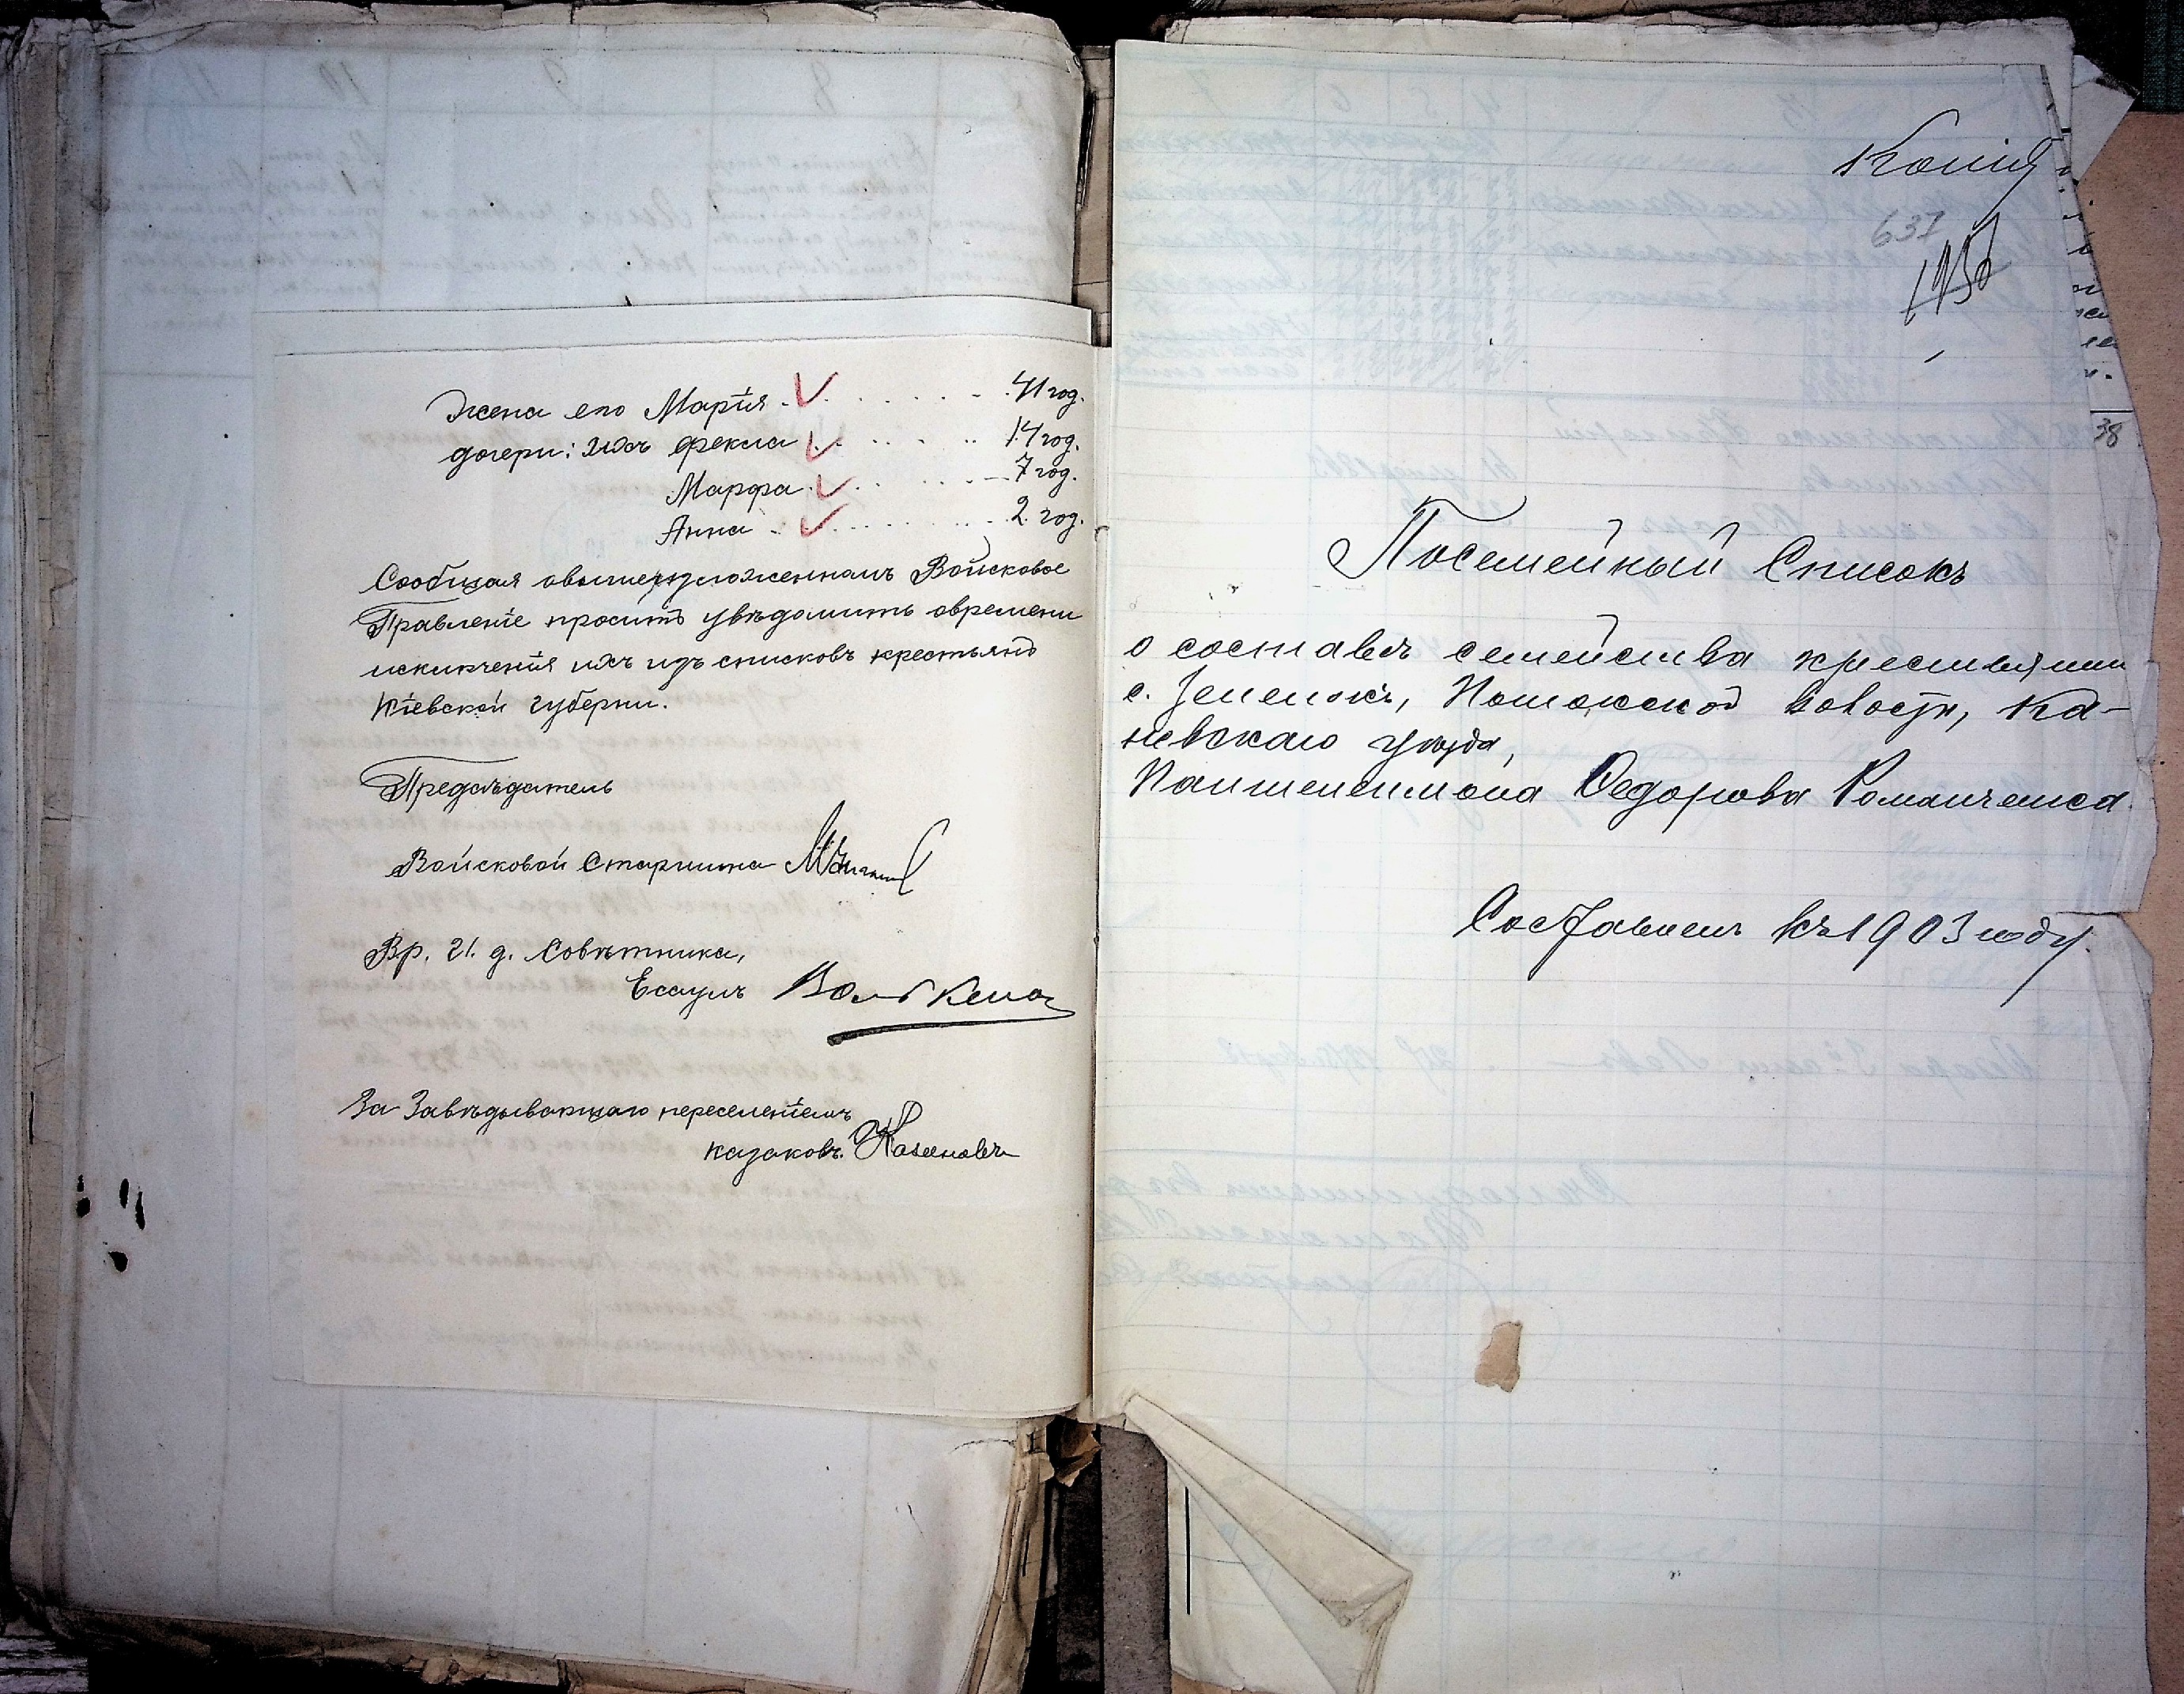 Жена его Марія . . . . . . 41 год.
дочери: ихъ Фекла . . . . . 14 год.
Марфа . . . . . . 7 год.
Анна . . . . . . 2 год.
Сообщая овышеизложенномъ Войсковое
Правленіе проситъ увѣдомить овремени
исключенія ихъ изъ списковъ крестьянъ
Кіевской губерни.
Предсѣдатель
Войсковой Старшина
Вр. И. д. Совѣтника,
Есаулъ
За Завѣдывающаго переселеніемъ
казаковъ.
Копія
631
38
Посемейный Списокъ
о составѣ семейства крестьянина
с. Зеленокъ, Потокской волости, Ка-
невскаго уѣзда,
Пантелеимона Федорова Романченка
Составленъ къ 1903 году.